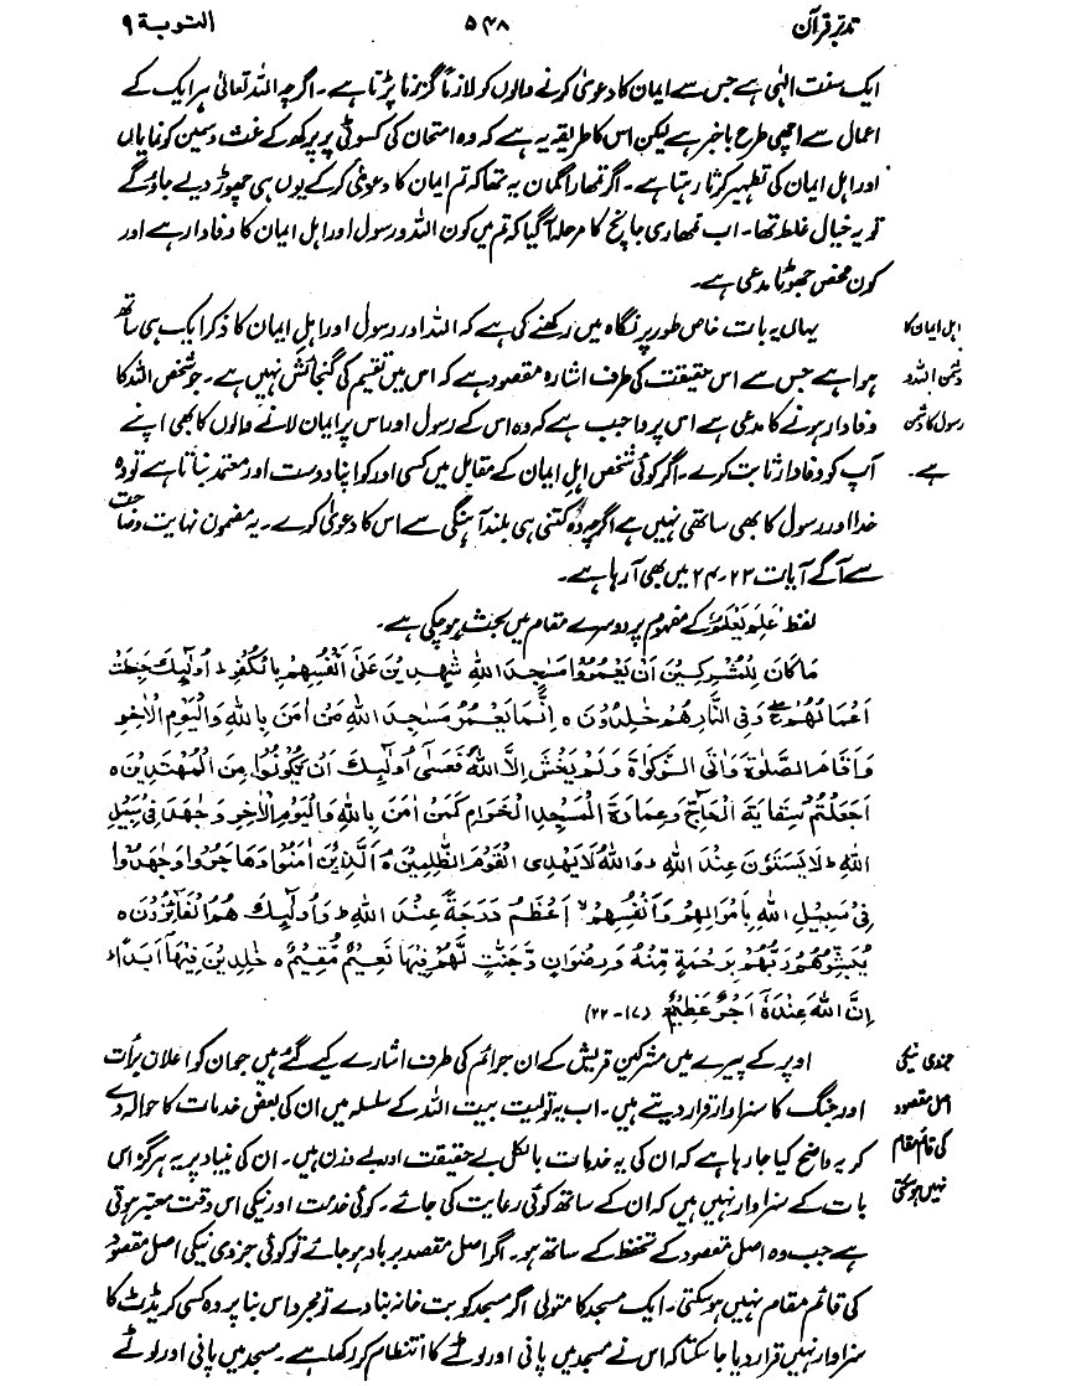 تدبرِ قرآن ۵۴۸ التوبة ۹
ایک سنت الٰہی ہے جس سے ایمان کا دعویٰ کرنے والوں کو لازماً گزرنا پڑتا ہے۔ اگرچہ اللہ تعالیٰ ہر ایک کے
اعمال سے اچھی طرح باخبر ہے لیکن اس کا طریقہ یہ ہے کہ وہ امتحان کی کسوٹی پر پرکھ کے غث و سمین کو نمایاں
اور اہل ایمان کی تطہیر کرتا رہتا ہے۔ اگر تمھارا گمان یہ تھا کہ تم ایمان کا دعویٰ کرکے یوں ہی چھوڑ دیے جاؤ گے
تو یہ خیال غلط تھا۔ اب تمھاری جانچ کا مرحلہ آگیا کہ تم میں کون اللہ و رسول اور اہل ایمان کا وفادار ہے اور
کون محض جھوٹا مدعی ہے۔
یہاں یہ بات خاص طور پر نگاہ میں رکھنے کی ہے کہ اللہ اور رسول اور اہلِ ایمان کا ذکر ایک ہی ساتھ
ہوا ہے جس سے اس حقیقت کی طرف اشارہ مقصود ہے کہ اس میں تقسیم کی گنجائش نہیں ہے۔ جو شخص اللہ کا
وفادار ہونے کا مدعی ہے اس پر واجب ہے کہ وہ اس کے رسول اور اس پر ایمان لانے والوں کا بھی اپنے
آپ کو وفادار ثابت کرے۔ اگر کوئی شخص اہلِ ایمان کے مقابل میں کسی اور کو اپنا دوست اور معتمد بناتا ہے تو وہ
خدا اور رسول کا بھی ساتھی نہیں ہے اگرچہ وہ کتنی ہی بلند آہنگی سے اس کا دعویٰ کرے۔ یہ مضمون نہایت وضاحت
سے آگے آیات ۲۳۔۲۴ میں بھی آ رہا ہے۔
اہل ایمان کا
دشمن اللہ و
رسول کا دشمن
ہے۔
لفظ 'عَلِمَ یَعْلَمُ' کے مفہوم پر دوسرے مقام میں بحث ہوچکی ہے۔
مَا كَانَ لِلْمُشْرِكِيْنَ اَنْ يَّعْمُرُوْا مَسٰجِدَ اللهِ شٰهِدِيْنَ عَلٰٓى اَنْفُسِهِمْ بِالْكُفْرِ ؕ اُولٰٓئِكَ حَبِطَتْ
اَعْمَالُهُمْ ۖۚ وَفِى النَّارِ هُمْ خٰلِدُوْنَ ه اِنَّمَا يَعْمُرُ مَسٰجِدَ اللهِ مَنْ اٰمَنَ بِاللهِ وَالْيَوْمِ الْاٰخِرِ
وَاَقَامَ الصَّلٰوةَ وَاٰتَى الزَّكٰوةَ وَلَمْ يَخْشَ اِلَّا اللهَ فَعَسٰٓى اُولٰٓئِكَ اَنْ يَّكُوْنُوْا مِنَ الْمُهْتَدِيْنَ ه
اَجَعَلْتُمْ سِقَايَةَ الْحَآجِّ وَعِمَارَةَ الْمَسْجِدِ الْحَرَامِ كَمَنْ اٰمَنَ بِاللهِ وَالْيَوْمِ الْاٰخِرِ وَجٰهَدَ فِىْ سَبِيْلِ
اللهِ ؕ لَا يَسْتَوٗنَ عِنْدَ اللهِ ؕ وَاللهُ لَا يَهْدِى الْقَوْمَ الظّٰلِمِيْنَ ه اَلَّذِيْنَ اٰمَنُوْا وَهَاجَرُوْا وَجٰهَدُوْا
فِىْ سَبِيْلِ اللهِ بِاَمْوَالِهِمْ وَاَنْفُسِهِمْ ۙ اَعْظَمُ دَرَجَةً عِنْدَ اللهِ ؕ وَاُولٰٓئِكَ هُمُ الْفَآئِزُوْنَ ه
يُبَشِّرُهُمْ رَبُّهُمْ بِرَحْمَةٍ مِّنْهُ وَرِضْوَانٍ وَّجَنّٰتٍ لَّهُمْ فِيْهَا نَعِيْمٌ مُّقِيْمٌ ه خٰلِدِيْنَ فِيْهَآ اَبَدًا ؕ
اِنَّ اللهَ عِنْدَهٗٓ اَجْرٌ عَظِيْمٌ (۱۷-۲۲)
اوپر کے پیرے میں مشرکینِ قریش کے ان جرائم کی طرف اشارے کیے گئے ہیں جو ان کو اعلان براءت
اور جنگ کا سزاوار قرار دیتے ہیں۔ اب یہ تولیت بیت اللہ کے سلسلہ میں ان کی بعض خدمات کا حوالہ دے
کر یہ واضح کیا جا رہا ہے کہ ان کی یہ خدمات بالکل بے حقیقت اور بے وزن ہیں۔ ان کی بنیاد پر یہ ہرگز اس
بات کے سزاوار نہیں ہیں کہ ان کے ساتھ کوئی رعایت کی جائے۔ کوئی خدمت اور نیکی اس وقت معتبر ہوتی
ہے جب وہ اصل مقصود کے تحفظ کے ساتھ ہو۔ اگر اصل مقصد برباد ہوجائے تو کوئی جزوی نیکی اصل مقصود
کی قائم مقام نہیں ہوسکتی۔ ایک مسجد کا متولی اگر مسجد کو بت خانہ بنا دے تو مجرد اس بنا پر وہ کسی کریڈٹ کا
سزاوار نہیں قرار دیا جا سکتا کہ اس نے مسجد میں پانی اور لوٹے کا انتظام کر رکھا ہے۔ مسجد میں پانی اور لوٹے
جزوی نیکی
اصل مقصود
کی قائم مقام
نہیں ہوسکتی